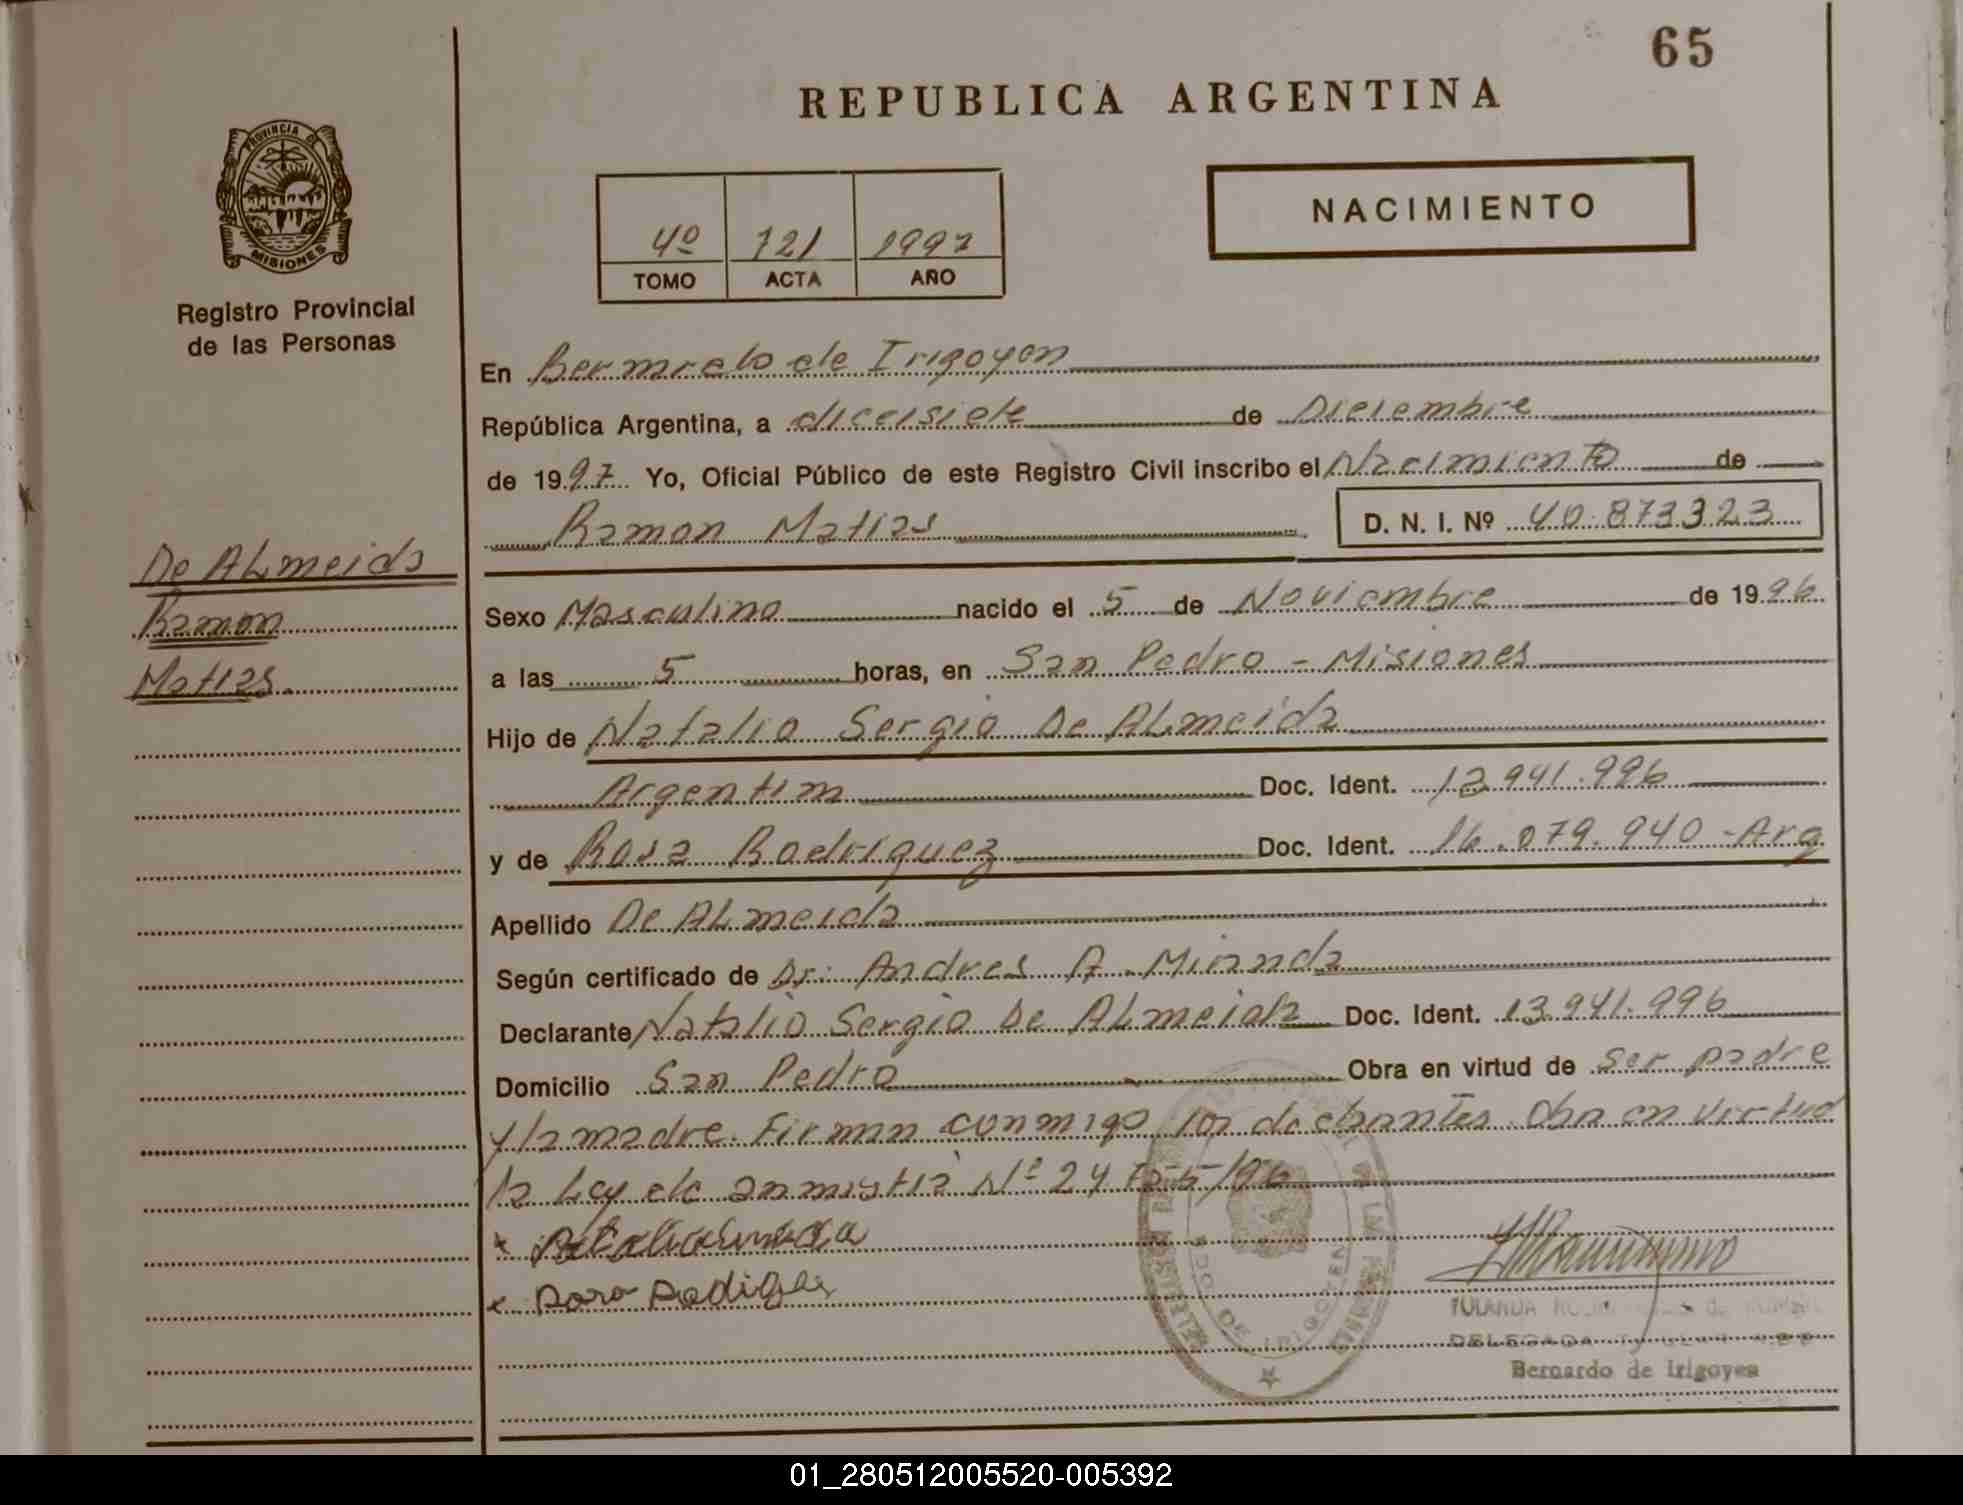 65
REPUBLICA ARGENTINA
PROVINCIA DE
MISIONES
Registro Provincial
de las Personas
4º 721 1997
TOMO ACTA AÑO
NACIMIENTO
En Bernardo de Irigoyen
República Argentina, a diecisiete de Diciembre
de 1997 Yo, Oficial Público de este Registro Civil inscribo el Nacimiento de
Ramon Matias D. N. I. Nº 40.873323
De ALmeida
Ramon
Matias.
Sexo Masculino nacido el 5 de Noviembre de 1996
a las 5 horas, en San Pedro - Misiones
Hijo de Natalio Sergio De ALmeida
Argentina Doc. Ident. 13.941.996
y de Rosa Rodriguez Doc. Ident. 16.079.940 - Arg
Apellido De ALmeida
Según certificado de Dr: Andres A. Miranda
Declarante Natalio Sergio De ALmeida Doc. Ident. 13.941.996
Domicilio San Pedro Obra en virtud de ser padre
y la madre. Firman conmigo los declarantes. Obra en virtud
la Ley de amnistia Nº 24.755/96
DELEGADA
Bernardo de Irigoyen
DE IRIGOYEN
01_280512005520-005392